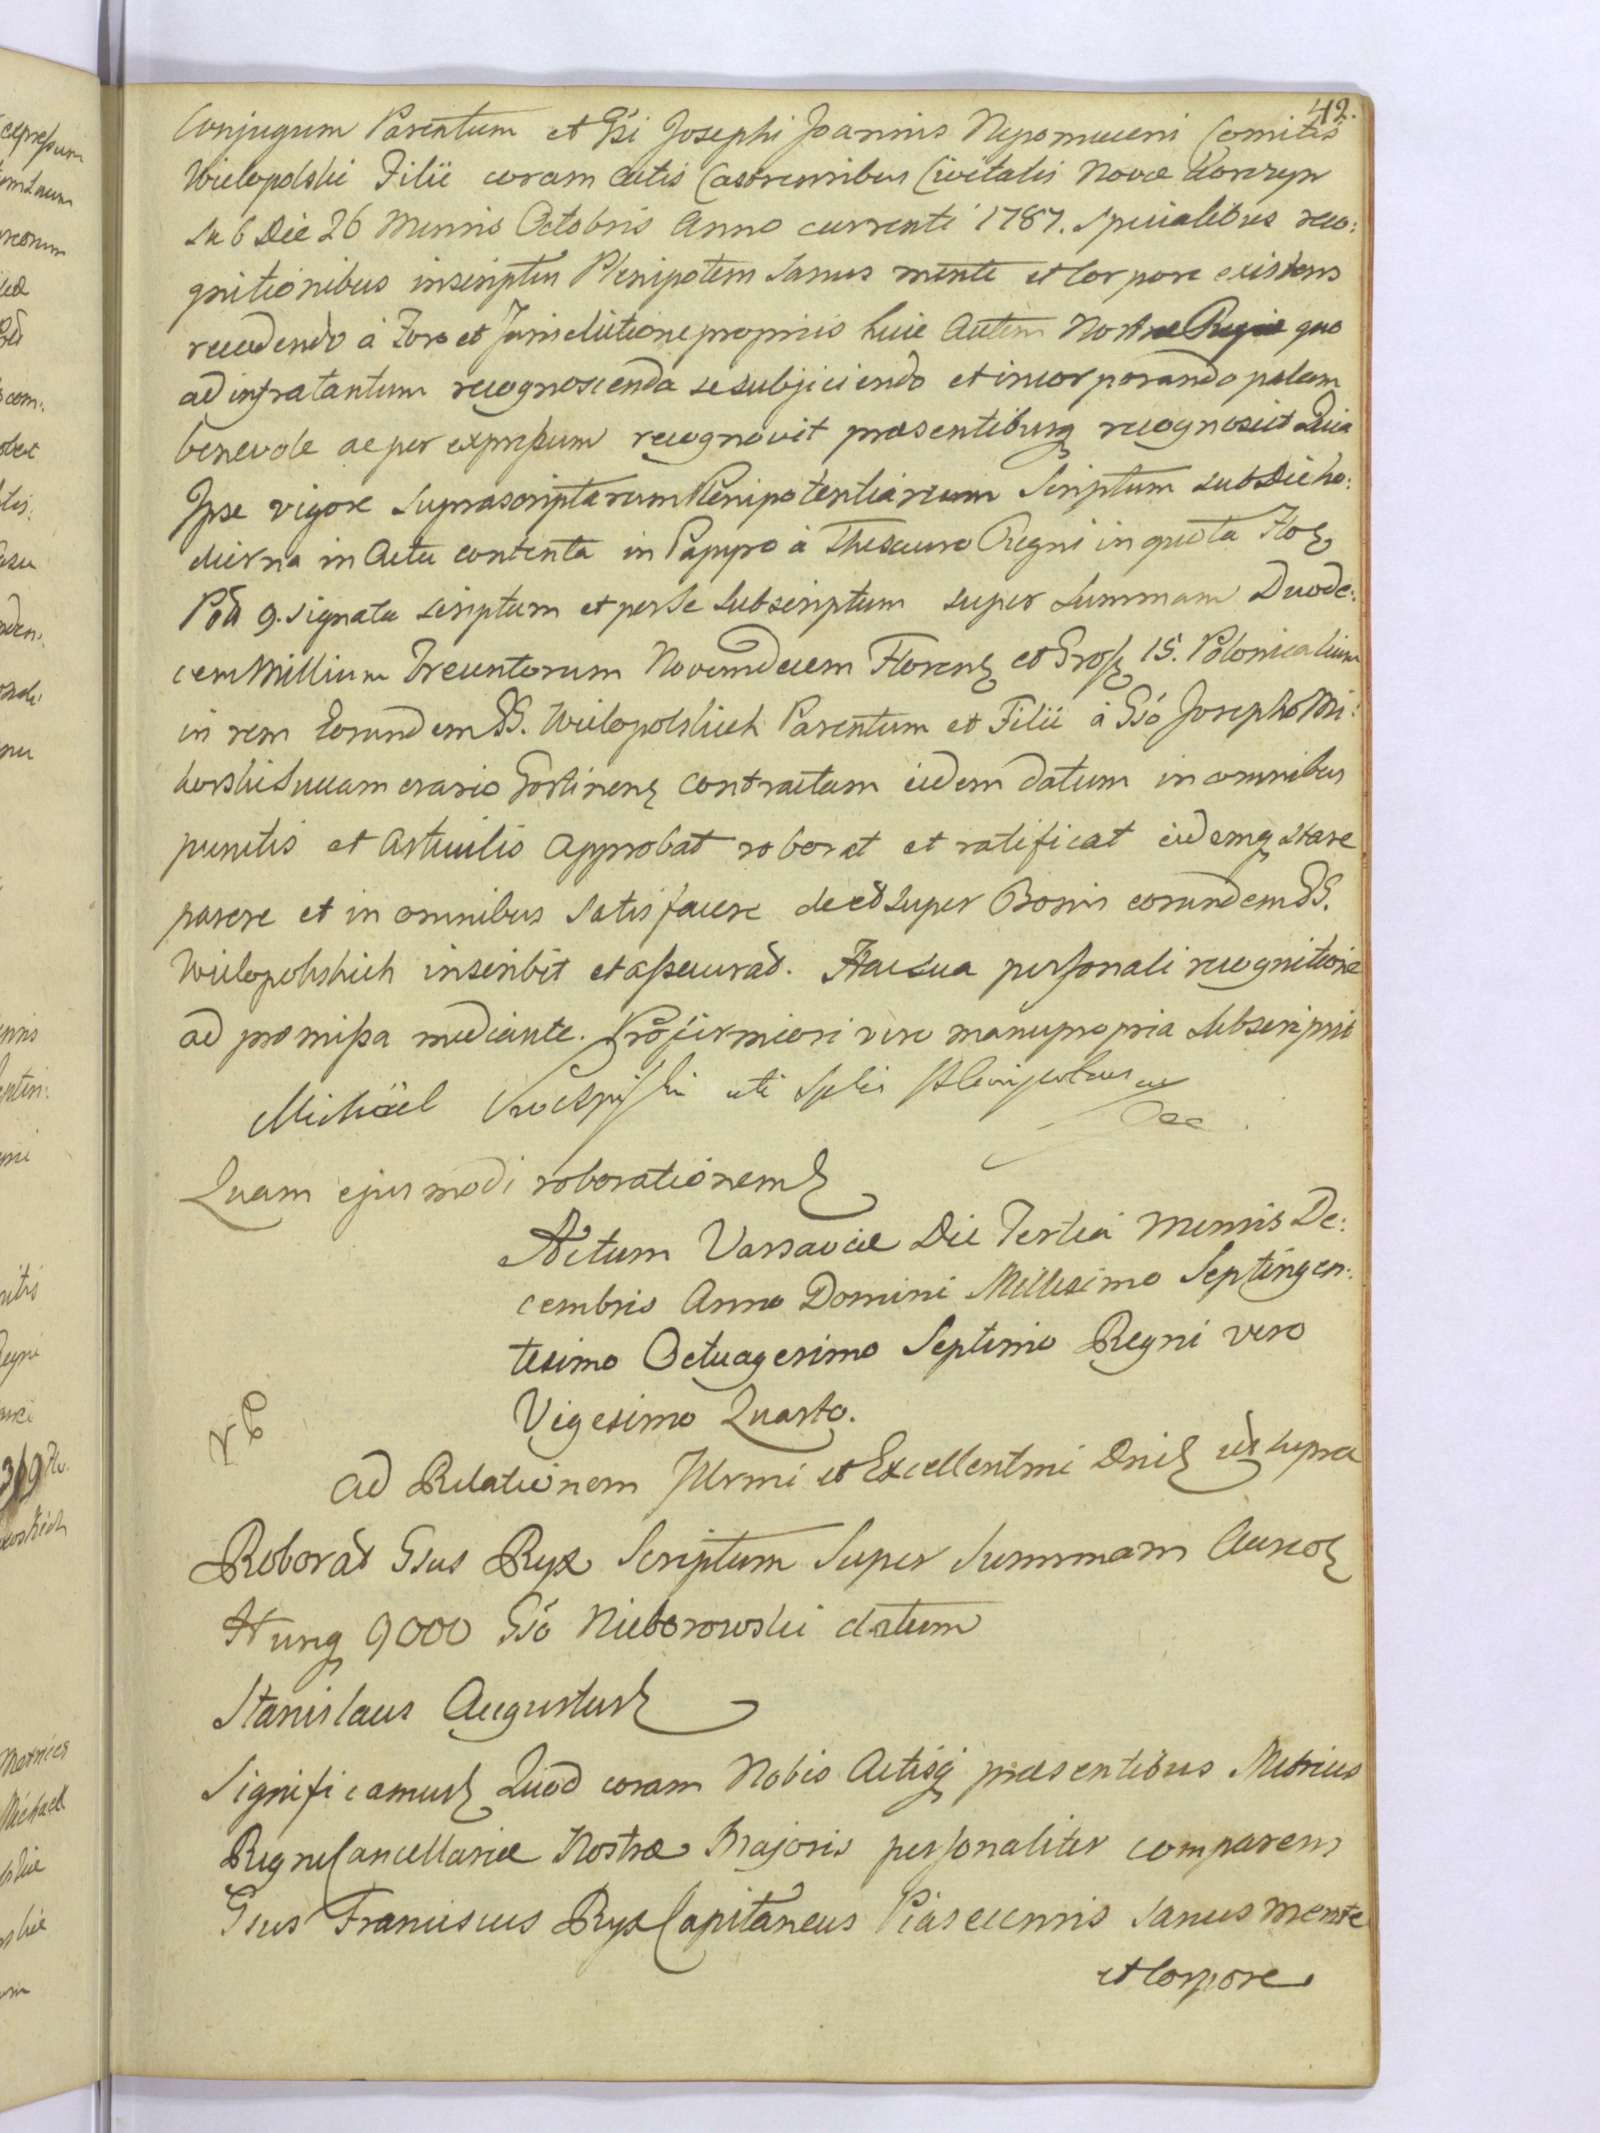 42.
Conjugum Parentum et Gsi Josephi Joannis Nepomuceni Comitis
Wielopolski Filii coram Actis Castrensibus Civitatis Novæ Korczyn
Sub Die 26 Mensis Octobris Anno currenti 1787. Specialibus reco:
gnitionibus inscriptus Plenipotens Sanus mente et Corpore existens
recedendo à Foro et Jurisdictione propriis huic Autem Nostræ Regiæ quo
ad infra tantum recognoscenda se subjiciendo et incorporando palam
benevole ac per expressum recognovit præsentibusq recognoscit Quia
Ipse vigore suprascriptarum Plenipotentiarum Scriptum sub Die ho:
dierna in Actu contenta in Papyro à Thesauro Regni in quota Flor
Pol 9. signata scriptum et per se subscriptum super Summam Duode:
cem Millium Trecentorum Novemdecem Floren et Gross 15. Polonicalium
in rem Eorundem GG. Wielopolskich Parentum et Filii à Gso Josepho Mi:
korski Succam erario contractam eidem datum in omnibus
punctis et Articulis approbat roborat et ratificat eidemq stare
parere et in omnibus satisfacere de et super Bonis eorundem GG.
Wielopolskich inscribit et assecurat. Hac Sua personali recognitione
ad præmissa mediante. Pro firmiori vero manu propria Subscripsit
Michäel uti Splis Plenipotens
Quam ejusmodi roborationem
Actum Varsaviæ Die Tertia Mensis De:
cembris Anno Domini Millesimo Septingen:
tesimo Octuagesimo Septimo Regni vero
Vigesimo Quarto.
Ad Relationem Illrmi et Excellentmi Dni ut supra
Roborat Gsus Ryx Scriptum Super Summam Aureo
Hung 9000 Gso Nieborowski datum
Stanislaus Augustus
Significamus Quod coram Nobis Actisq præsentibus Metrices
Regni Cancellariæ Nostræ Majoris personaliter comparens
Gsus Franciscus Ryx Capitaneus Piasecensis Sanus Mente
et Corpore